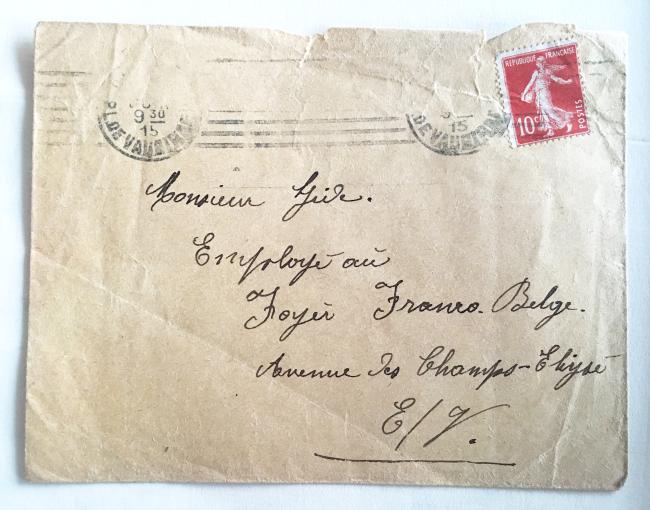 RÉPUBLIQUE FRANÇAISE
10c
POSTES
9 30
15
DE VAUGIRARD
15
DE VAUGIRARD
Monsieur Gide.
Employé au
Foyer Franco-Belge.
Avenue des Champs-Elysé
E/V.